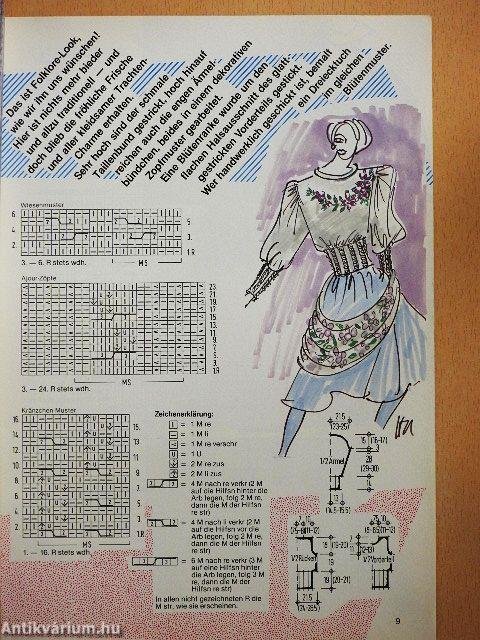 Das ist Folklore-Look,
wie wir ihn uns wünschen!
Hier ist nichts mehr bieder
und allzu traditionell – und
doch blieb die fröhliche Frische
und aller kleidsamer Trachten-
Charme erhalten.
Sehr hoch sind der schmale
Taillenbund gestrickt, hoch hinauf
reichen auch die engen Ärmel-
bündchen, beides in einem dekorativen
Zopfmuster gearbeitet.
Eine Blütenranke wurde um den
flachen Halsausschnitt des glatt-
gestrickten Vorderteils gestickt.
Wer handwerklich geschickt ist, bemalt
ein Dreiecktuch
im gleichen
Blütenmuster.
Wiesenmuster
6.
4.
2.
5.
3.
1.R
MS
3. — 6. R stets wdh.
Ajour-Zöpfe
23.
21.
19.
17.
15.
13.
11.
9.
7.
5.
3.
1.R
MS
3. — 24. R stets wdh.
Kränzchen-Muster
16.
14.
12.
10.
8.
6.
4.
2.
15.
13.
11.
9.
7.
5.
3.
1.R
MS
1. — 16. R stets wdh.
Zeichenerklärung:
= 1 M re
= 1 M li
= 1 M re verschr
= 1 U
= 2 M re zus
= 2 M li zus
= 4 M nach re verkr (2 M
auf die Hilfsn hinter die
Arb legen, folg 2 M re,
dann die M der Hilfsn
re str)
= 4 M nach li verkr (2 M
auf die Hilfsn vor die
Arb legen, folg 2 M re,
dann die M der Hilfsn
re str)
= 6 M nach re verkr (3 M
auf eine Hilfsn hinter
die Arb legen, folg 3 M
re, dann die M der
Hilfsn re str)
In allen nicht gezeichneten R die
M str, wie sie erscheinen.
21,5
(23-25)
15 (16-17)
3
28
(29-30)
1/2 Ärmel
14
13
(14,5-15,5)
1/2 Rücken
19 (19-20)
19 (20-21)
21,5
(24-26,5)
1/2 Vorderteil
9
Antikvárium.hu